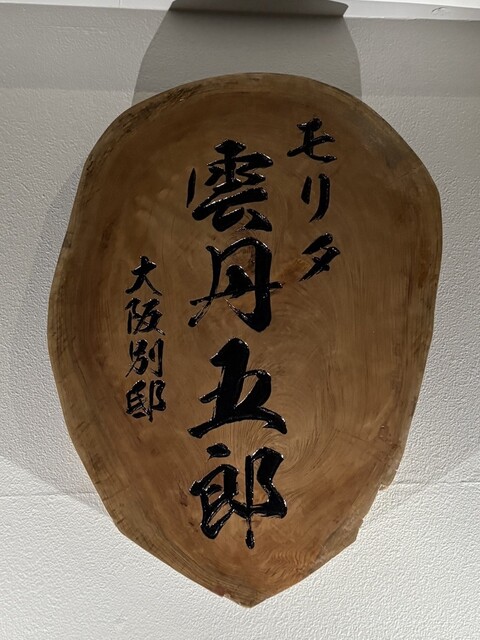 モリタ
雲丹五郎
大阪別邸